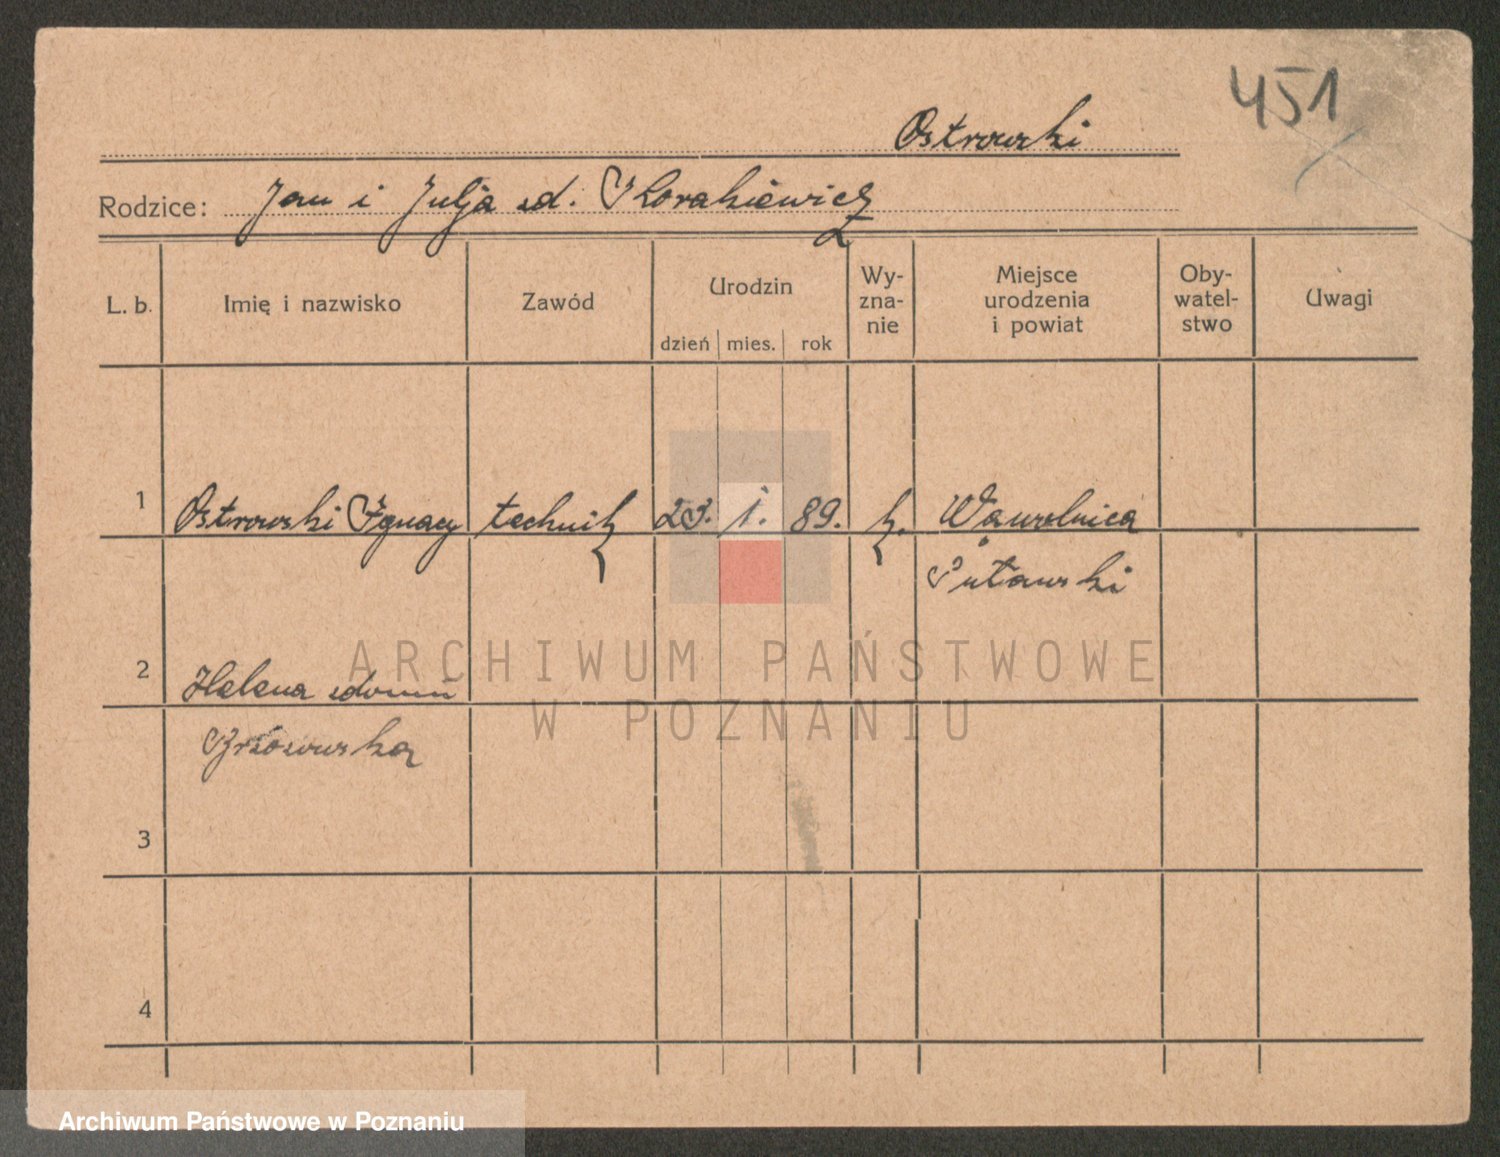 451
Ostrowski
Rodzice: Jan i Julja zd. Skorakiewicz
L. b. Imię i nazwisko Zawód Urodzin dzień mies. rok Wy-zna-nie Miejsce urodzenia i powiat Oby-watel-stwo Uwagi
1 Ostrowski Ignacy technik 23. 1. 89. k. Wąwolnica
Puławski
2 Helena zdomu
Brzozowska
3
4
ARCHIWUM PAŃSTWOWE
W POZNANIU
Archiwum Państwowe w Poznaniu